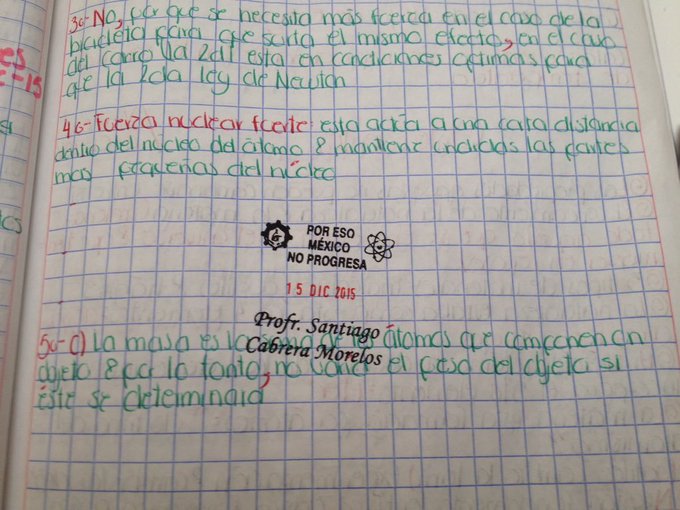 30-No, por que se necesita más fcerca en el caso de la
bicicleta para que surta el mismo efecto, en el caso
del carro la 2da esta en condiciones optimas para
es
que la 2da ley de Newton
-15
40-Fcerza nuclear fcerte: esta actúa a una corta distancia
dentro del núcleo del átomo & mantiene unidas las partes
mas pequeñas del núcleo
cs
POR ESO
MÉXICO
NO PROGRESA
15 DIC 2015
Profr. Santiago
Cabrera Morelos
50-C) La masa es átomos que componen un
objeto & por lo tanto, no el peso del objeto si
éste se determinara